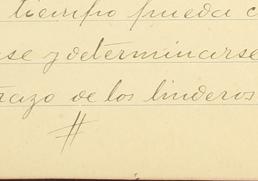 tiempo pueda c
se y determinarse
razo de los linderos
#